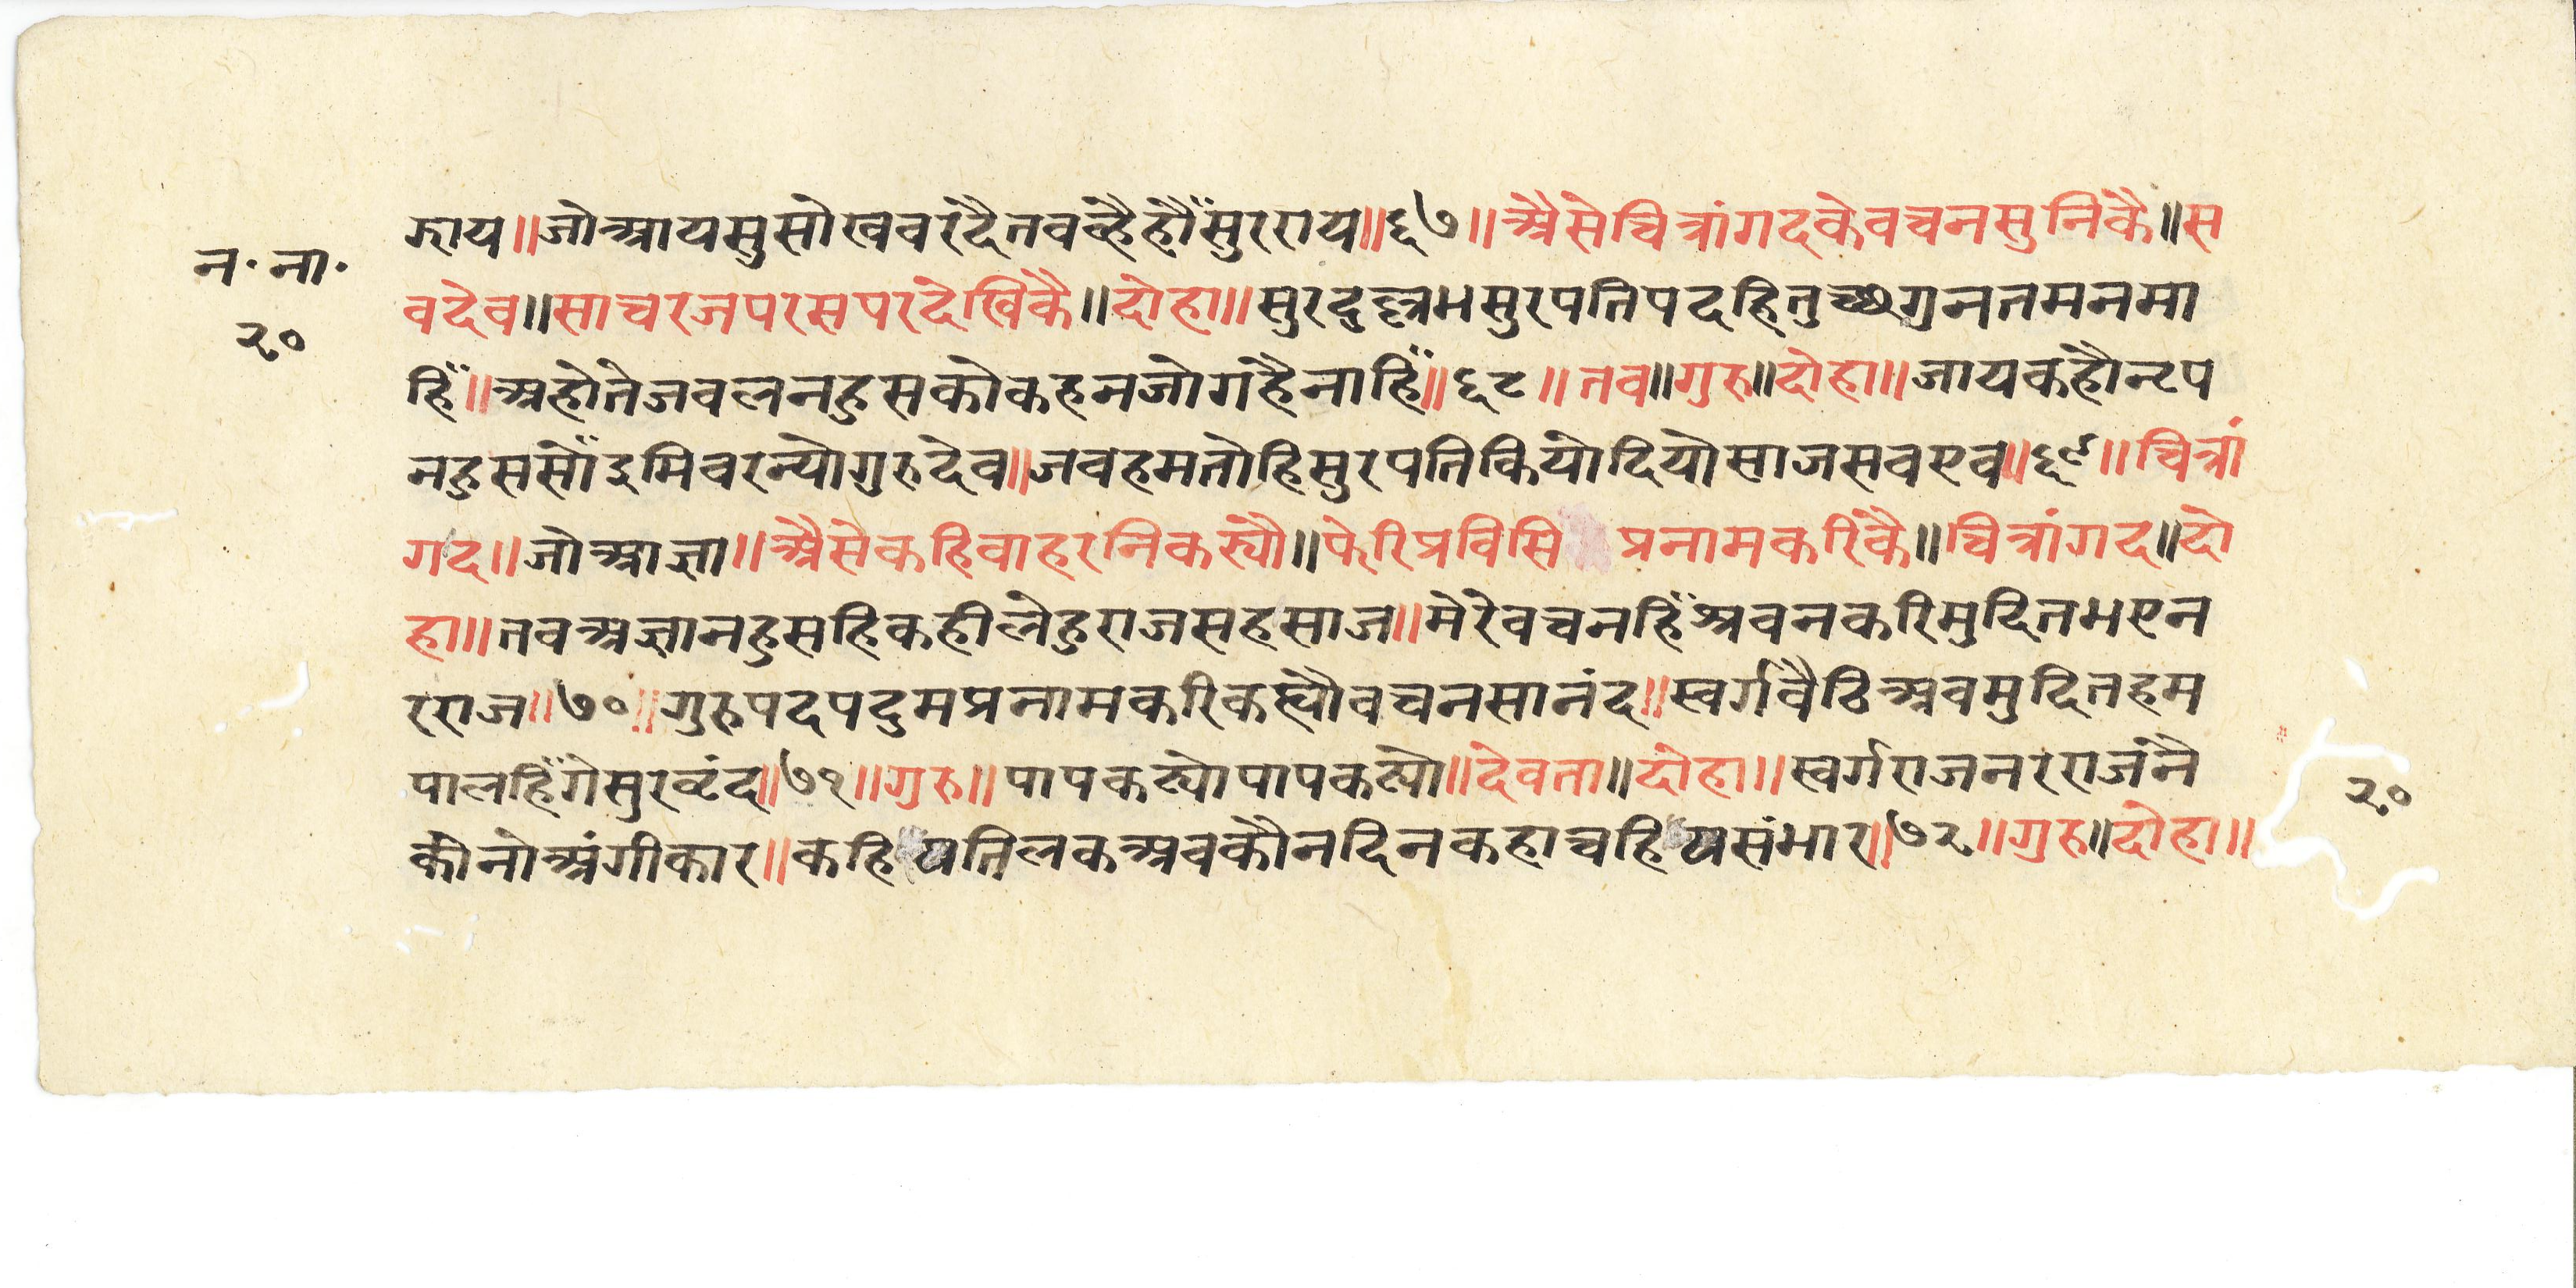 न॰ ना॰
२०
झाय॥जोआयसुसोखबरदैतबव्हैहौँसुरराय॥६७॥अैसेचित्रांगदकेवचनसुनिकै॥स
बदेव॥साचरजपरसपरदेखिकै॥दोहा॥सुरदुल्लभसुरपतिपदहितुच्छगनतमनमा
हिँ॥अहोतेजबलनहुसकोकहनजोगहैनाहिँ॥६८॥तब॥गुरु॥दोहा॥जायकहौनृप
नहुससौँइमिबरन्योगुरुदेव॥जबहमतोहिसुरपतिकियोदियोसाजसबएव॥६९॥चित्रां
गद॥जोआज्ञा॥अैसेकहिबाहरनिकस्यौ॥फेरिप्रविसि प्रनामकरिकै॥चित्रांगद॥दो
हा॥तवअज्ञानहुसहिकहीलेहुराजसहसाज॥मेरेवचनहिँश्रवनकरिमुदितभएन
रराज॥७०॥गुरुपदपदुमप्रनामकरिकह्यौवचनसानंद॥स्वर्गबैठिअबमुदितहम
पालहिँगेसुरवृंद॥७१॥गुरु॥पापकट्योपापकट्यो॥देवता॥दोहा॥स्वर्गराजनरराजनै
कीनोअंगीकार॥कहियतिलकअबकौनदिनकहाचहियसंभार॥७२॥गुरु॥दोहा॥
२०